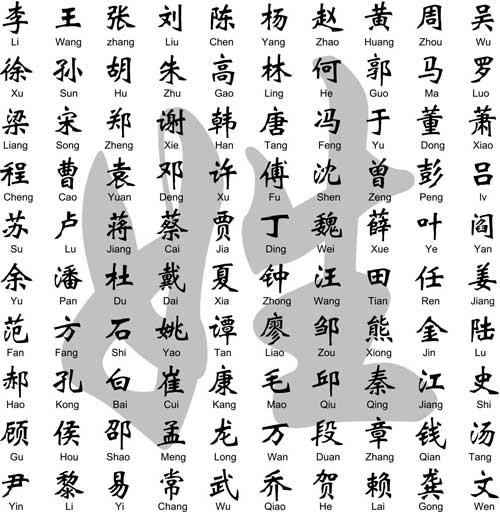 李 王 张 刘 陈 杨 赵 黄 周 吴
Li Wang zhang Liu Chen Yang Zhao Huang Zhou Wu
徐 孙 胡 朱 高 林 何 郭 马 罗
Xu Sun Hu Zhu Gao Ling He Guo Ma Luo
梁 宋 郑 谢 韩 唐 冯 于 董 萧
Liang Song Zheng Xie Han Tang Feng Yu Dong Xiao
程 曹 袁 邓 许 傅 沈 曾 彭 吕
Cheng Cao Yuan Deng Xu Fu Shen Zeng Peng lv
苏 卢 蒋 蔡 贾 丁 魏 薛 叶 阎
Su Lu Jiang Cai Jia Ding Wei Xue Ye Yan
余 潘 杜 戴 夏 钟 汪 田 任 姜
Yu Pan Du Dai Xia Zhong Wang Tian Ren Jiang
范 方 石 姚 谭 廖 邹 熊 金 陆
Fan Fang Shi Yao Tan Liao Zou Xiong Jin Lu
郝 孔 白 崔 康 毛 邱 秦 江 史
Hao Kong Bai Cui Kang Mao Qiu Qing Jiang Shi
顾 侯 邵 孟 龙 万 段 章 钱 汤
Gu Hou Shao Meng Long Wan Duan Zhang Qian Tang
尹 黎 易 常 武 乔 贺 赖 龚 文
Yin Li Yi Chang Wu Qiao He Lai Gong Wen
姓